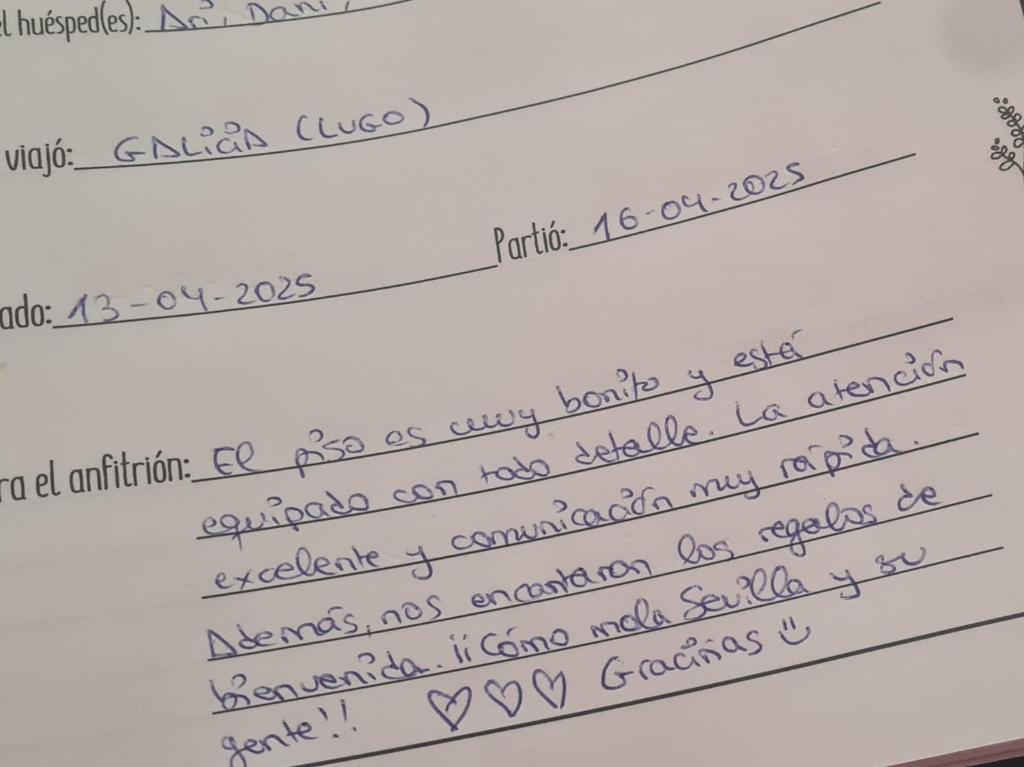 el huésped(es): Ari, Dani,
viajó: GALiCiA (LUGO)
Partió: 16-04-2025
ado: 13-04-2025
ra el anfitrión: El piso es muy bonito y está
equipado con todo detalle. La atención
excelente y comunicación muy rápida.
Además, nos encantaron los regalos de
bienvenida. ¡¡Cómo mola Sevilla y su
gente!! ♡♡♡ Graciñas